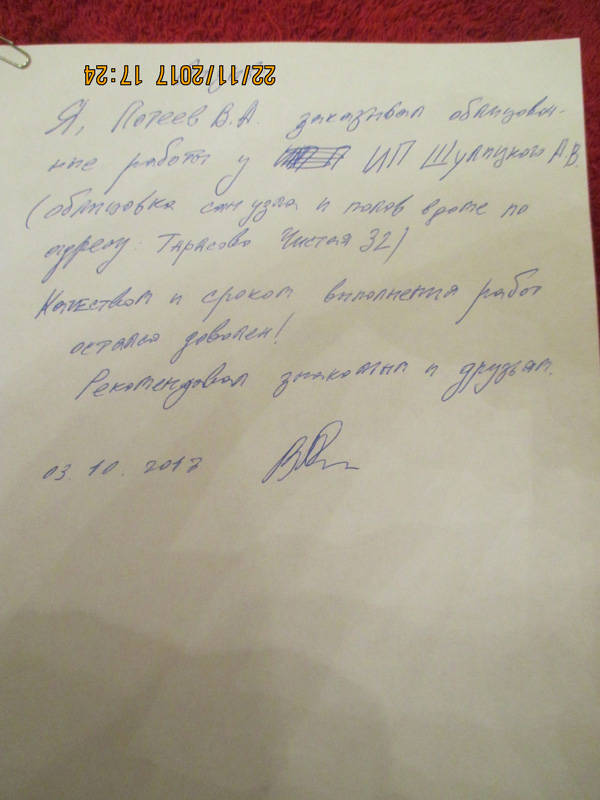 22/11/2017 17:24
Я, Потеев В.А. заказывал облицовоч-
ные работы у ИП Шулицкого А.В.
(облицовка сан узла и полов в доме по
адресу: Тарасово Чистая 32)
Качеством и сроком выполнения работ
остался доволен!
Рекомендовал знакомым и друзьям.
03.10.2017